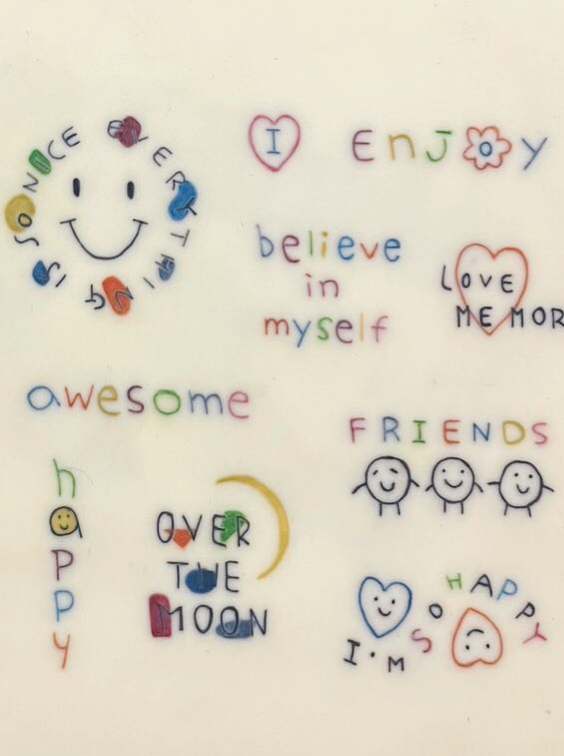 EVERYTHING IS SO NICE
I ENJOY
believe
in
myself
LOVE
MEMOR
awesome
FRIENDS
happy
OVER
THE
MOON
I'M SO HAPPY